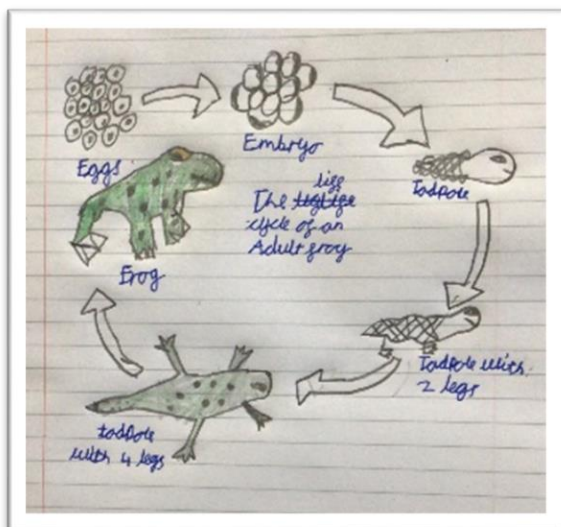 Eggs
Embryo
Tadpole
life
The
cycle of an
Adult frog
Frog
Tadpole with
2 legs
tadpole
with 4 legs